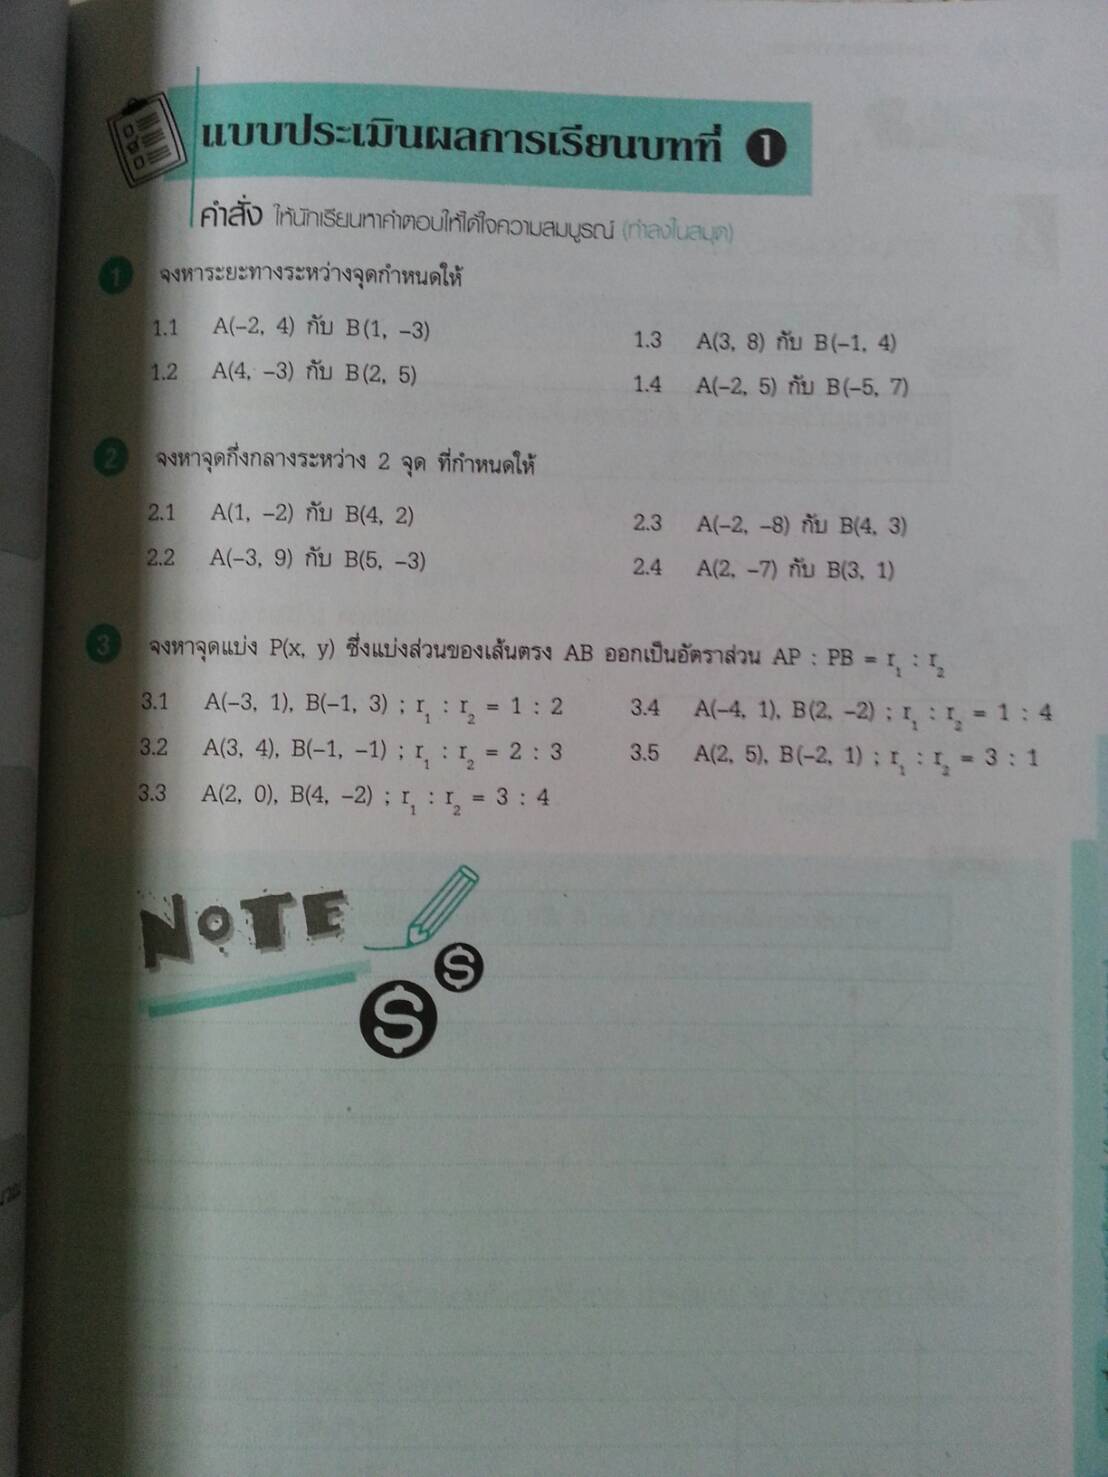 แบบประเมินผลการเรียนบทที่ 1
คำสั่ง ให้นักเรียนหาคำตอบให้ได้ใจความสมบูรณ์ (ทำลงในสมุด)
1 จงหาระยะทางระหว่างจุดกำหนดให้
1.1 A(–2, 4) กับ B(1, –3)
1.2 A(4, –3) กับ B(2, 5)
1.3 A(3, 8) กับ B(–1, 4)
1.4 A(–2, 5) กับ B(–5, 7)
2 จงหาจุดกึ่งกลางระหว่าง 2 จุด ที่กำหนดให้
2.1 A(1, –2) กับ B(4, 2)
2.2 A(–3, 9) กับ B(5, –3)
2.3 A(–2, –8) กับ B(4, 3)
2.4 A(2, –7) กับ B(3, 1)
3 จงหาจุดแบ่ง P(x, y) ซึ่งแบ่งส่วนของเส้นตรง AB ออกเป็นอัตราส่วน AP : PB = r₁ : r₂
3.1 A(–3, 1), B(–1, 3) ; r₁ : r₂ = 1 : 2
3.2 A(3, 4), B(–1, –1) ; r₁ : r₂ = 2 : 3
3.3 A(2, 0), B(4, –2) ; r₁ : r₂ = 3 : 4
3.4 A(–4, 1), B(2, –2) ; r₁ : r₂ = 1 : 4
3.5 A(2, 5), B(–2, 1) ; r₁ : r₂ = 3 : 1
NOTE
$
$